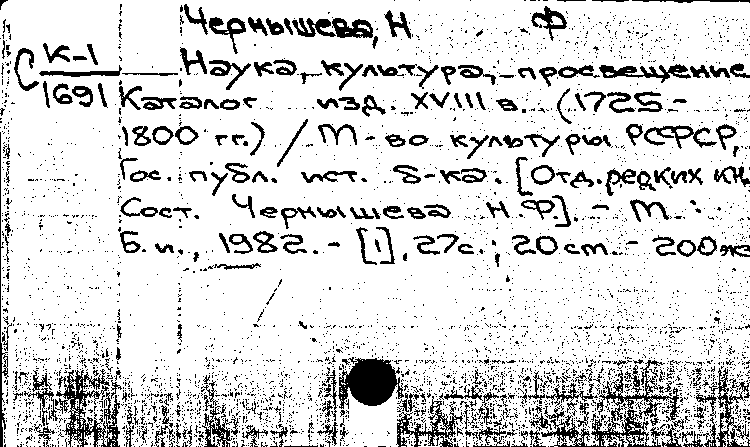 Чернышева, Н Ф
С К-1 Наука, культура, просвещение
1691 Каталог изд. XVIII в. (1725-
1800 гг.) / М-во культуры РСФСР,
Гос. публ. ист. б-ка. [Отд. редких кн.
Сост. Чернышева Н.Ф]. - М. :
Б. и., 1982. - [1], 27с.; 20 см. - 200 экз